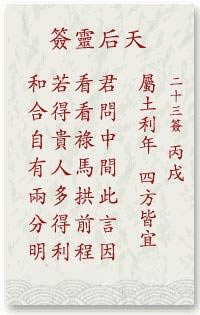 天后靈簽
二十三簽 丙戌
屬土利年 四方皆宜
君問中間此言因
看看祿馬拱前程
若得貴人多得利
和合自有兩分明